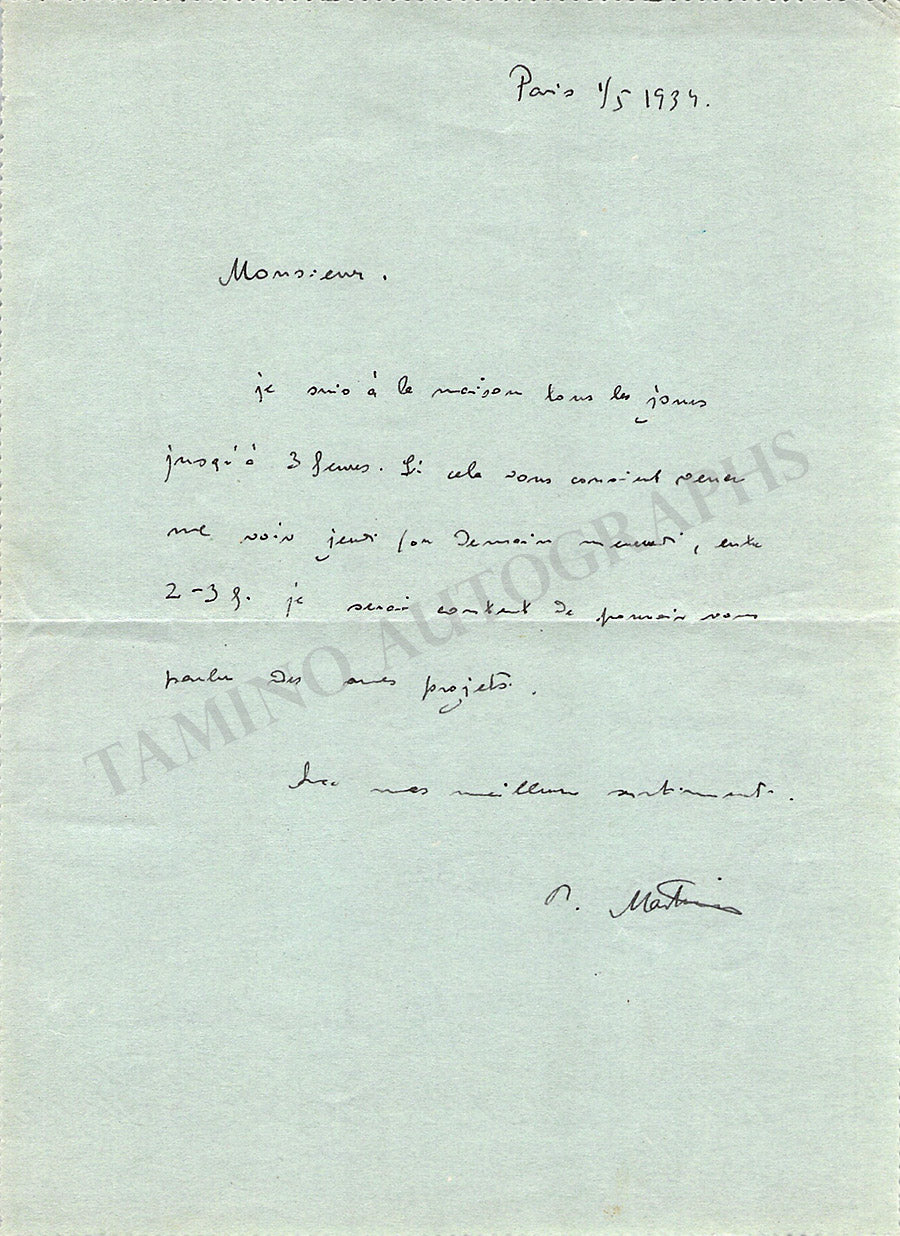 Paris 1/5 1934.
Monsieur.
je suis à la maison tous les jours
jusqu'à 3 heures. Si cela vous convient venez
me voir jeudi / ou demain mercredi, entre
2-3 h. je serai content de pouvoir vous
parler des mes projets.
Avec mes meilleurs sentiments.
B. Martinu
TAMINO AUTOGRAPHS